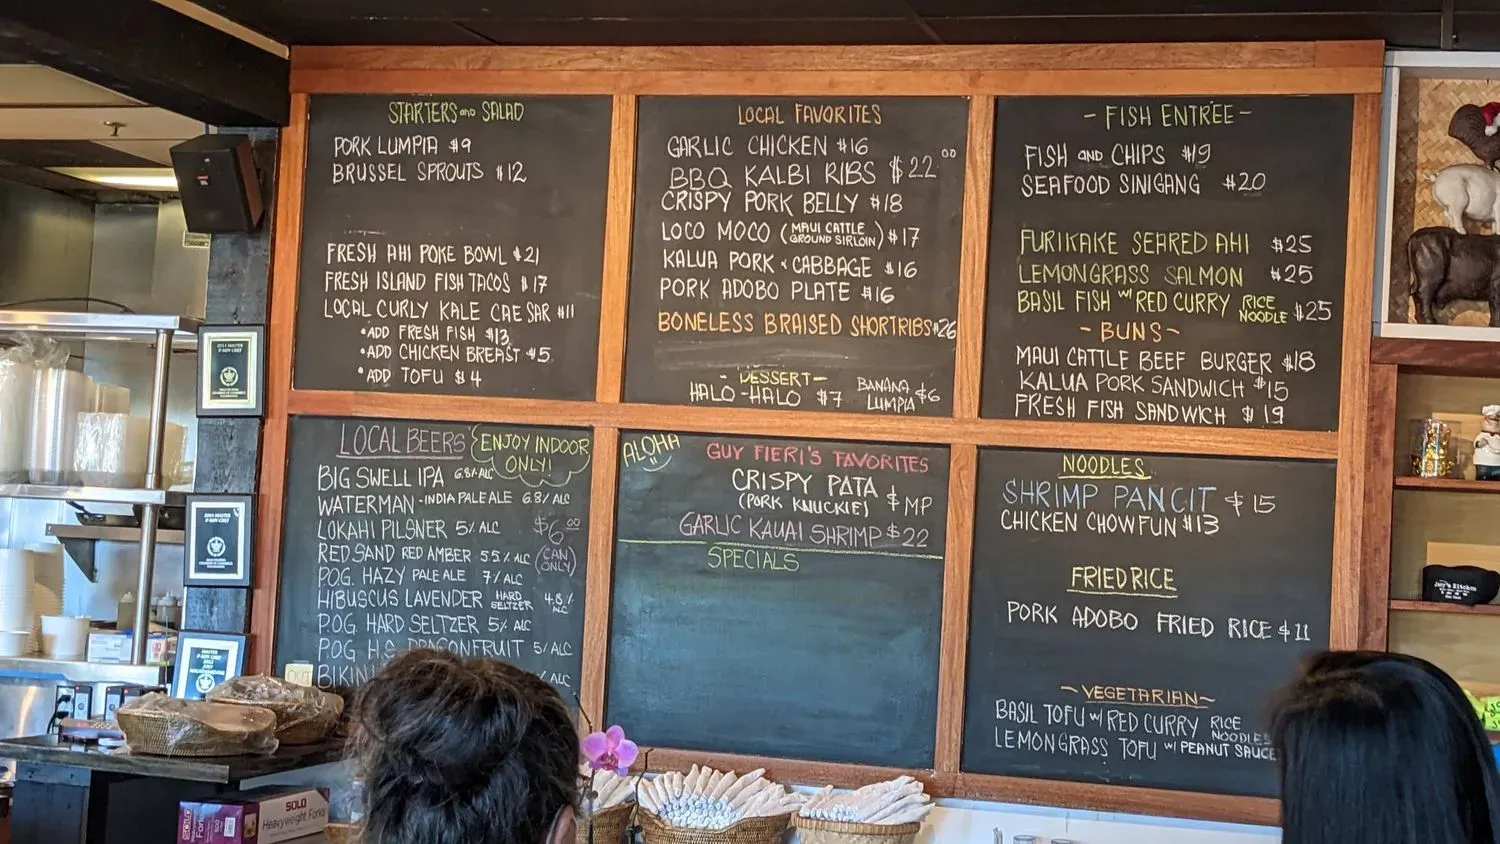 STARTERS AND SALAD
PORK LUMPIA $9
BRUSSEL SPROUTS $12
FRESH AHI POKE BOWL $21
FRESH ISLAND FISH TACOS $17
LOCAL CURLY KALE CAESAR $11
•ADD FRESH FISH $13
•ADD CHICKEN BREAST $5
•ADD TOFU $4
LOCAL FAVORITES
GARLIC CHICKEN $16
BBQ KALBI RIBS $22.00
CRISPY PORK BELLY $18
LOCO MOCO (MAUI CATTLE GROUND SIRLOIN) $17
KALUA PORK & CABBAGE $16
PORK ADOBO PLATE $16
BONELESS BRAISED SHORTRIBS $26
- DESSERT -
HALO-HALO $7 BANANA LUMPIA $6
- FISH ENTRÉE -
FISH AND CHIPS $19
SEAFOOD SINIGANG $20
FURIKAKE SEARED AHI $25
LEMONGRASS SALMON $25
BASIL FISH W/ RED CURRY RICE NOODLE $25
- BUNS -
MAUI CATTLE BEEF BURGER $18
KALUA PORK SANDWICH $15
FRESH FISH SANDWICH $19
LOCAL BEERS
ENJOY INDOOR
ONLY!
BIG SWELL IPA 6.8% ALC
WATERMAN - INDIA PALE ALE 6.8% ALC
LOKAHI PILSNER 5% ALC
$6.00
RED SAND RED AMBER 5.5% ALC
(CAN ONLY)
P.O.G. HAZY PALE ALE 7% ALC
HIBUSCUS LAVENDER HARD SELTZER 4.8% ALC
P.O.G. HARD SELTZER 5% ALC
P.O.G H.S. DRAGONFRUIT 5% ALC
OUT
BIKINI
% ALC
ALOHA
GUY FIERI'S FAVORITES
CRISPY PATA
(PORK KNUCKLE) $ MP
GARLIC KAUAI SHRIMP $22
SPECIALS
NOODLES
SHRIMP PANCIT $15
CHICKEN CHOWFUN $13
FRIED RICE
PORK ADOBO FRIED RICE $11
~VEGETARIAN~
BASIL TOFU W/ RED CURRY RICE NOODLES
LEMONGRASS TOFU W/ PEANUT SAUCE
SOLO
Heavyweight Forks